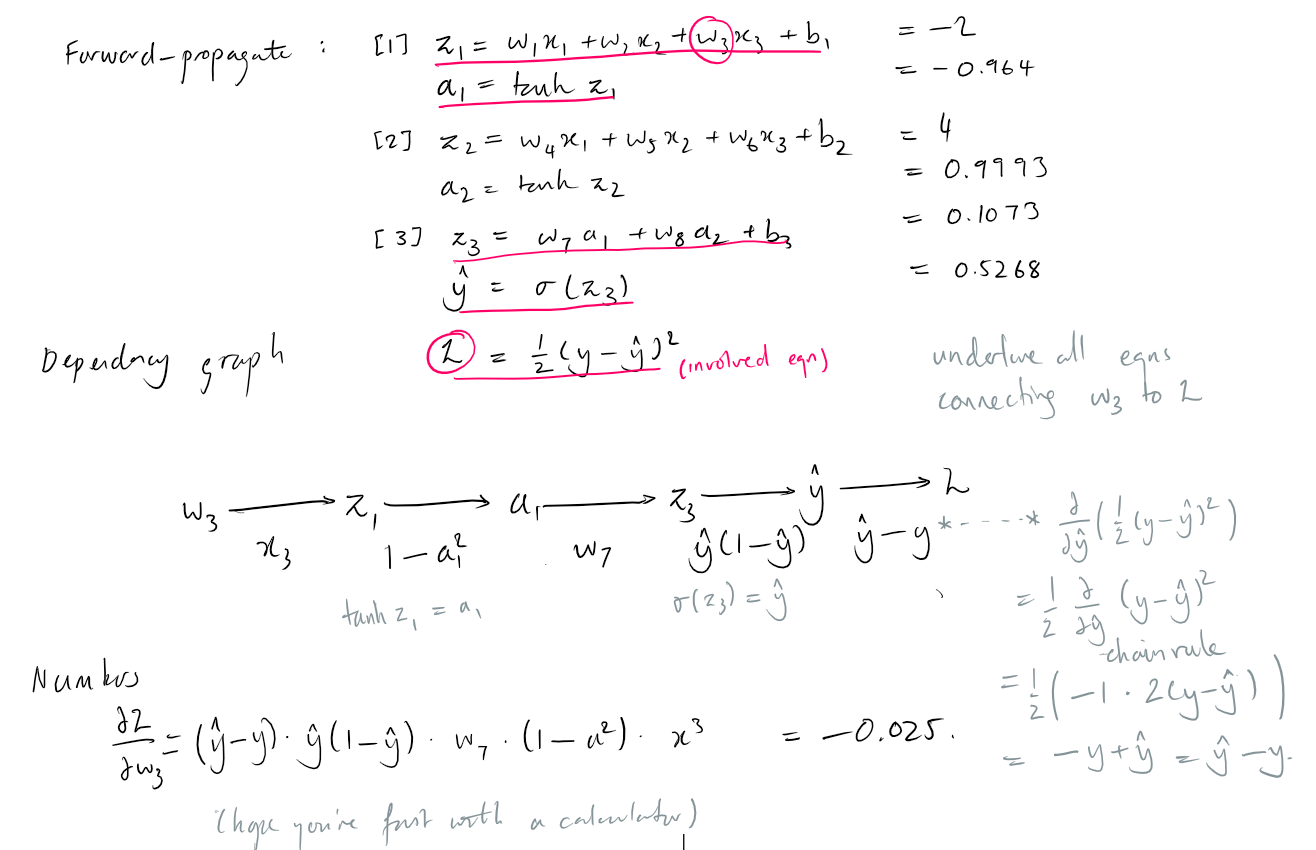 Forward-propagate : [1] z₁ = w₁x₁ + w₂x₂ + w₃x₃ + b₁ = -2
a₁ = tanh z₁ = -0.964
[2] z₂ = w₄x₁ + w₅x₂ + w₆x₃ + b₂ = 4
a₂ = tanh z₂ = 0.9993
[3] z₃ = w₇a₁ + w₈a₂ + b₃ = 0.1073
ŷ = σ(z₃) = 0.5268
Dependency graph L = ½(y-ŷ)² (involved eqn)
underline all eqns
connecting w₃ to L
w₃ → z₁ → a₁ → z₃ → ŷ → L
x₃ 1-a₁² w₇ ŷ(1-ŷ) ŷ-y *----* ∂/∂ŷ (½(y-ŷ)²)
tanh z₁ = a₁ σ(z₃) = ŷ = ½ ∂/∂ŷ (y-ŷ)²
chain rule
= ½(-1 · 2(y-ŷ))
= -y+ŷ = ŷ-y.
Numbers
∂L/∂w₃ = (ŷ-y) · ŷ(1-ŷ) · w₇ · (1-a²) · x³ = -0.025.
(hope you're fast with a calculator)